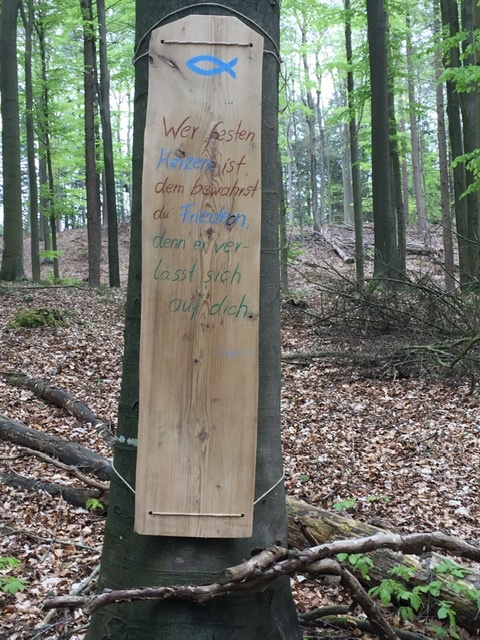 Wer festen
Herzens ist
dem bewahrst
du Frieden,
denn er ver-
lässt sich
auf dich.